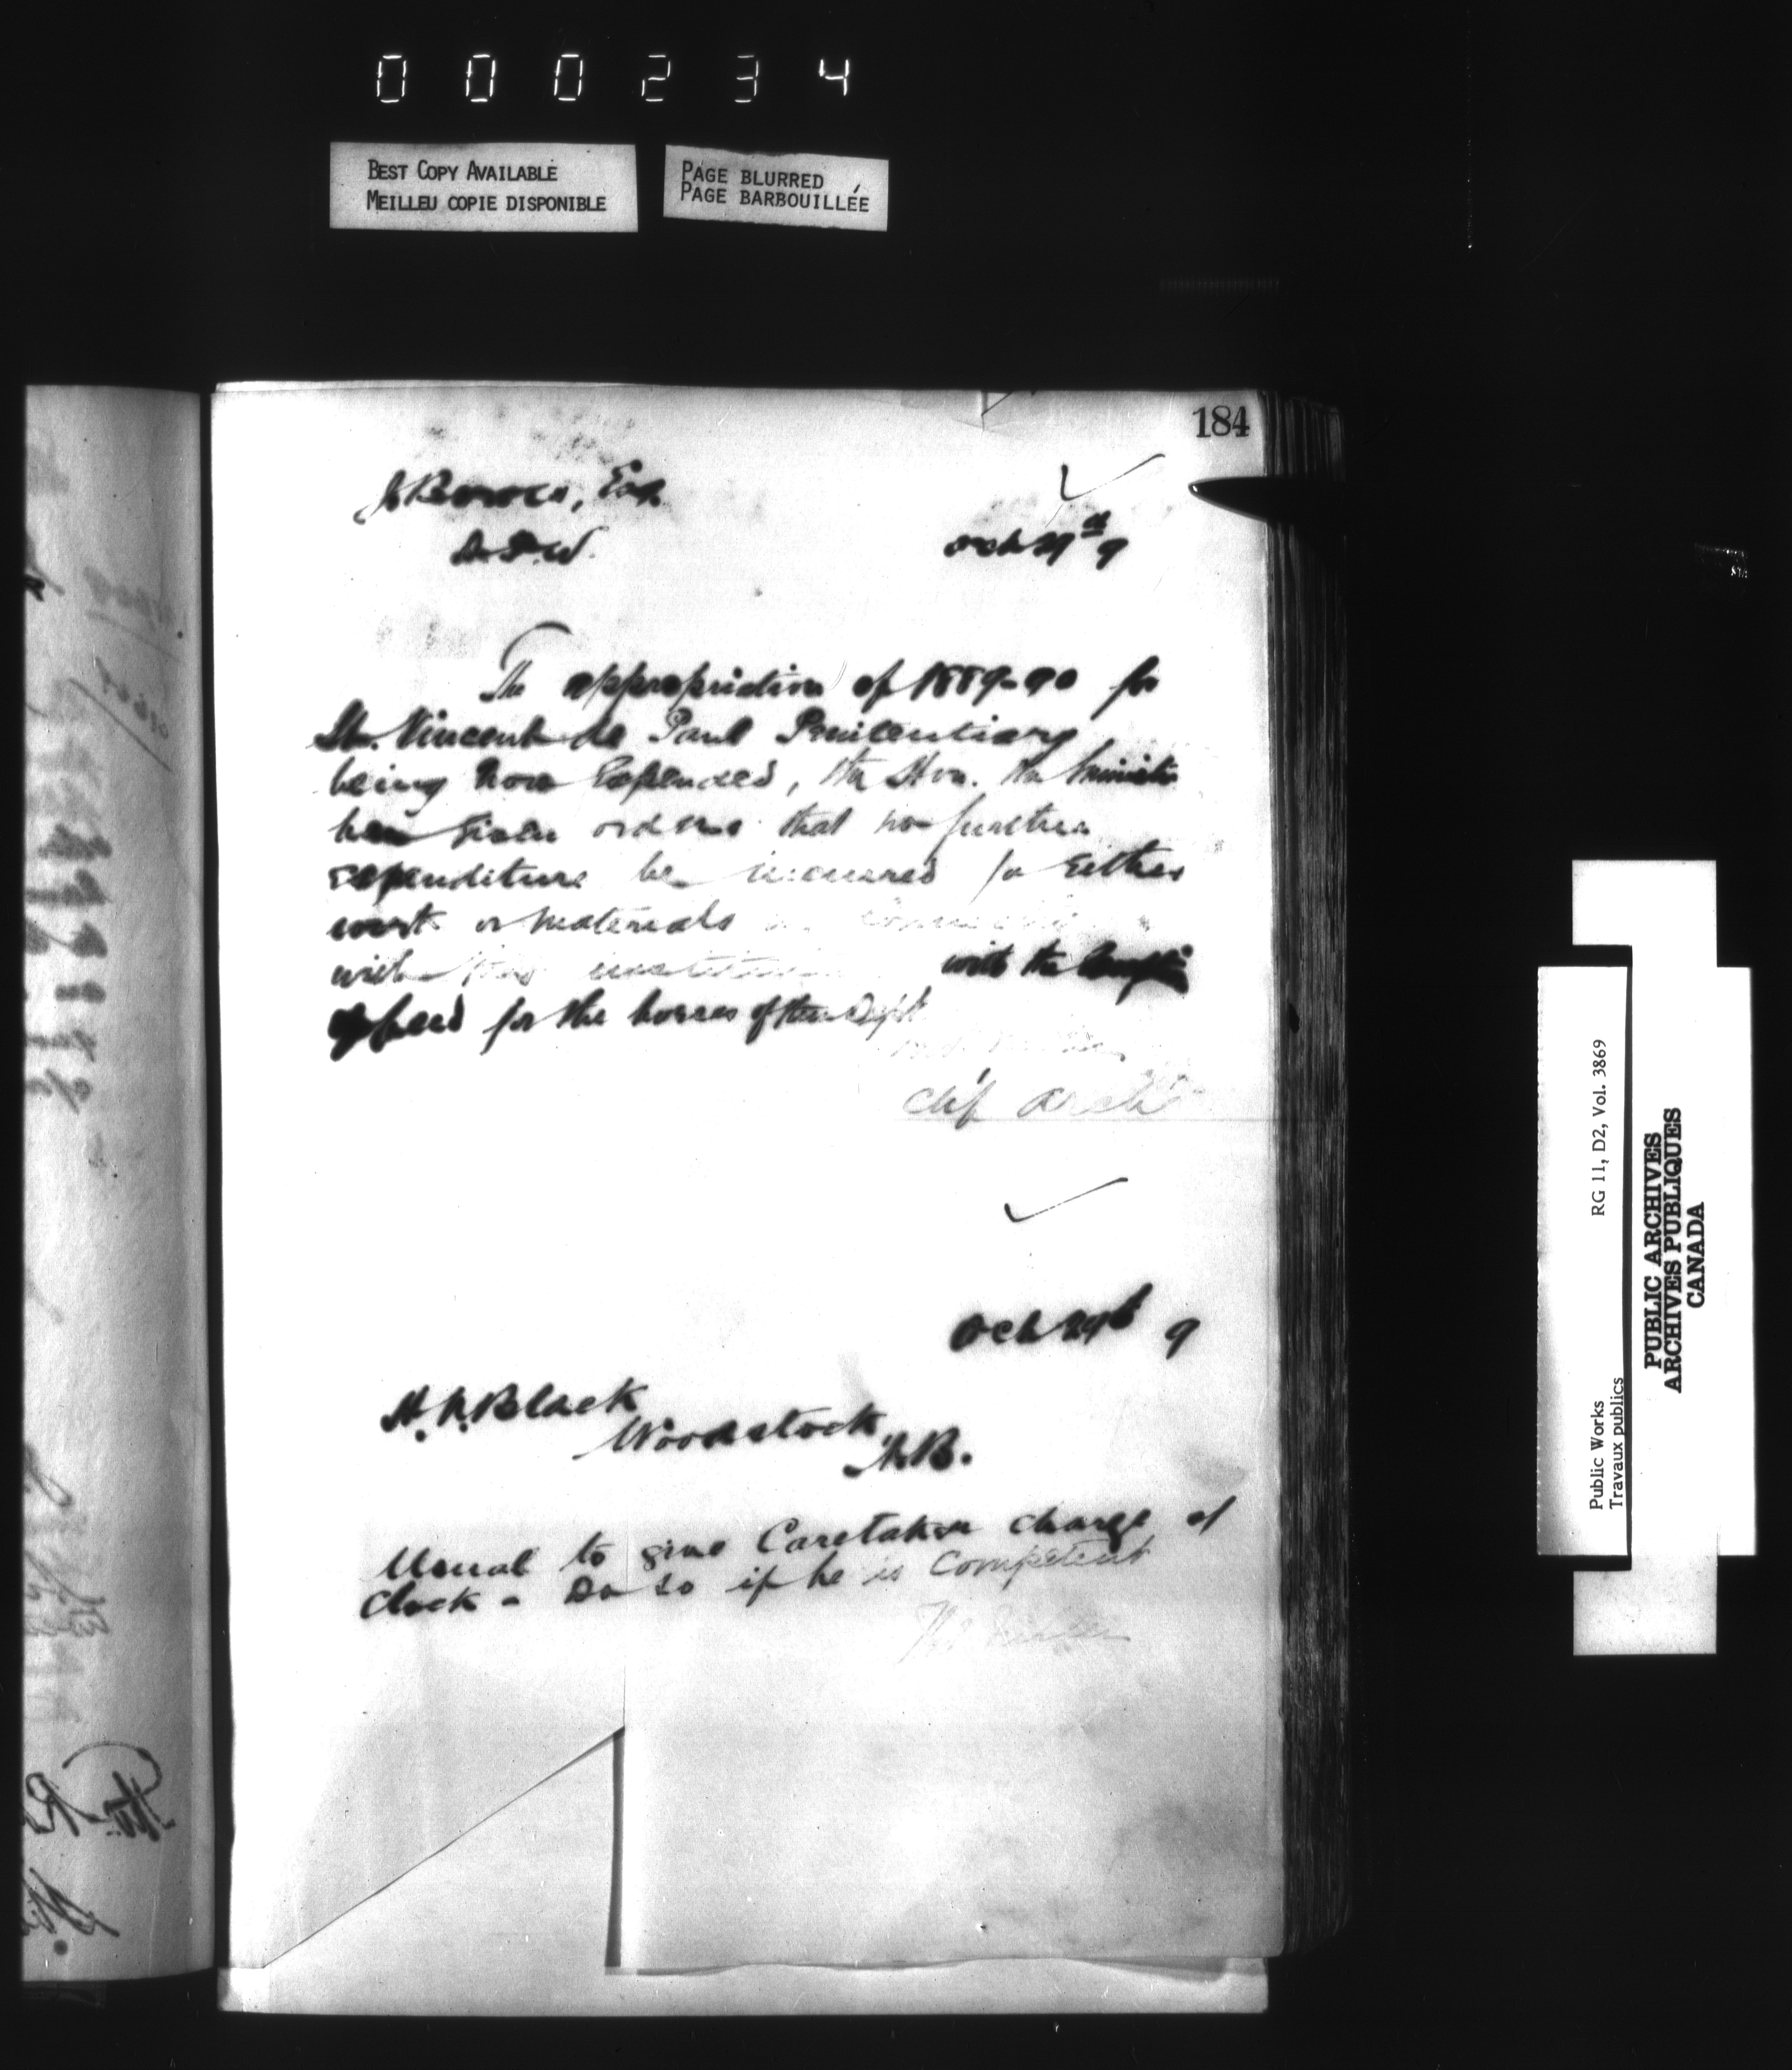 000234
BEST COPY AVAILABLE
MEILLEU COPIE DISPONIBLE
PAGE BLURRED
PAGE BARBOUILLÉE
184
Esq.
D.P.W.
Oct 29th 9
The appropriation of 1889-90 for
St. Vincent de Paul Penitentiary
being now Expended, the Hon. the Minister
has given orders that no further
expenditure be incurred for Either
work or materials in connection
with this institution with the
of feed for the horses of the Dept
Chf Archt
Oct 29th 9
Black
Woodstock
N.B.
Usual to give Caretaker charge of
Clock - Do so if he is Competent
Public Works
Travaux publics
RG 11, D2, Vol. 3869
PUBLIC ARCHIVES
ARCHIVES PUBLIQUES
CANADA